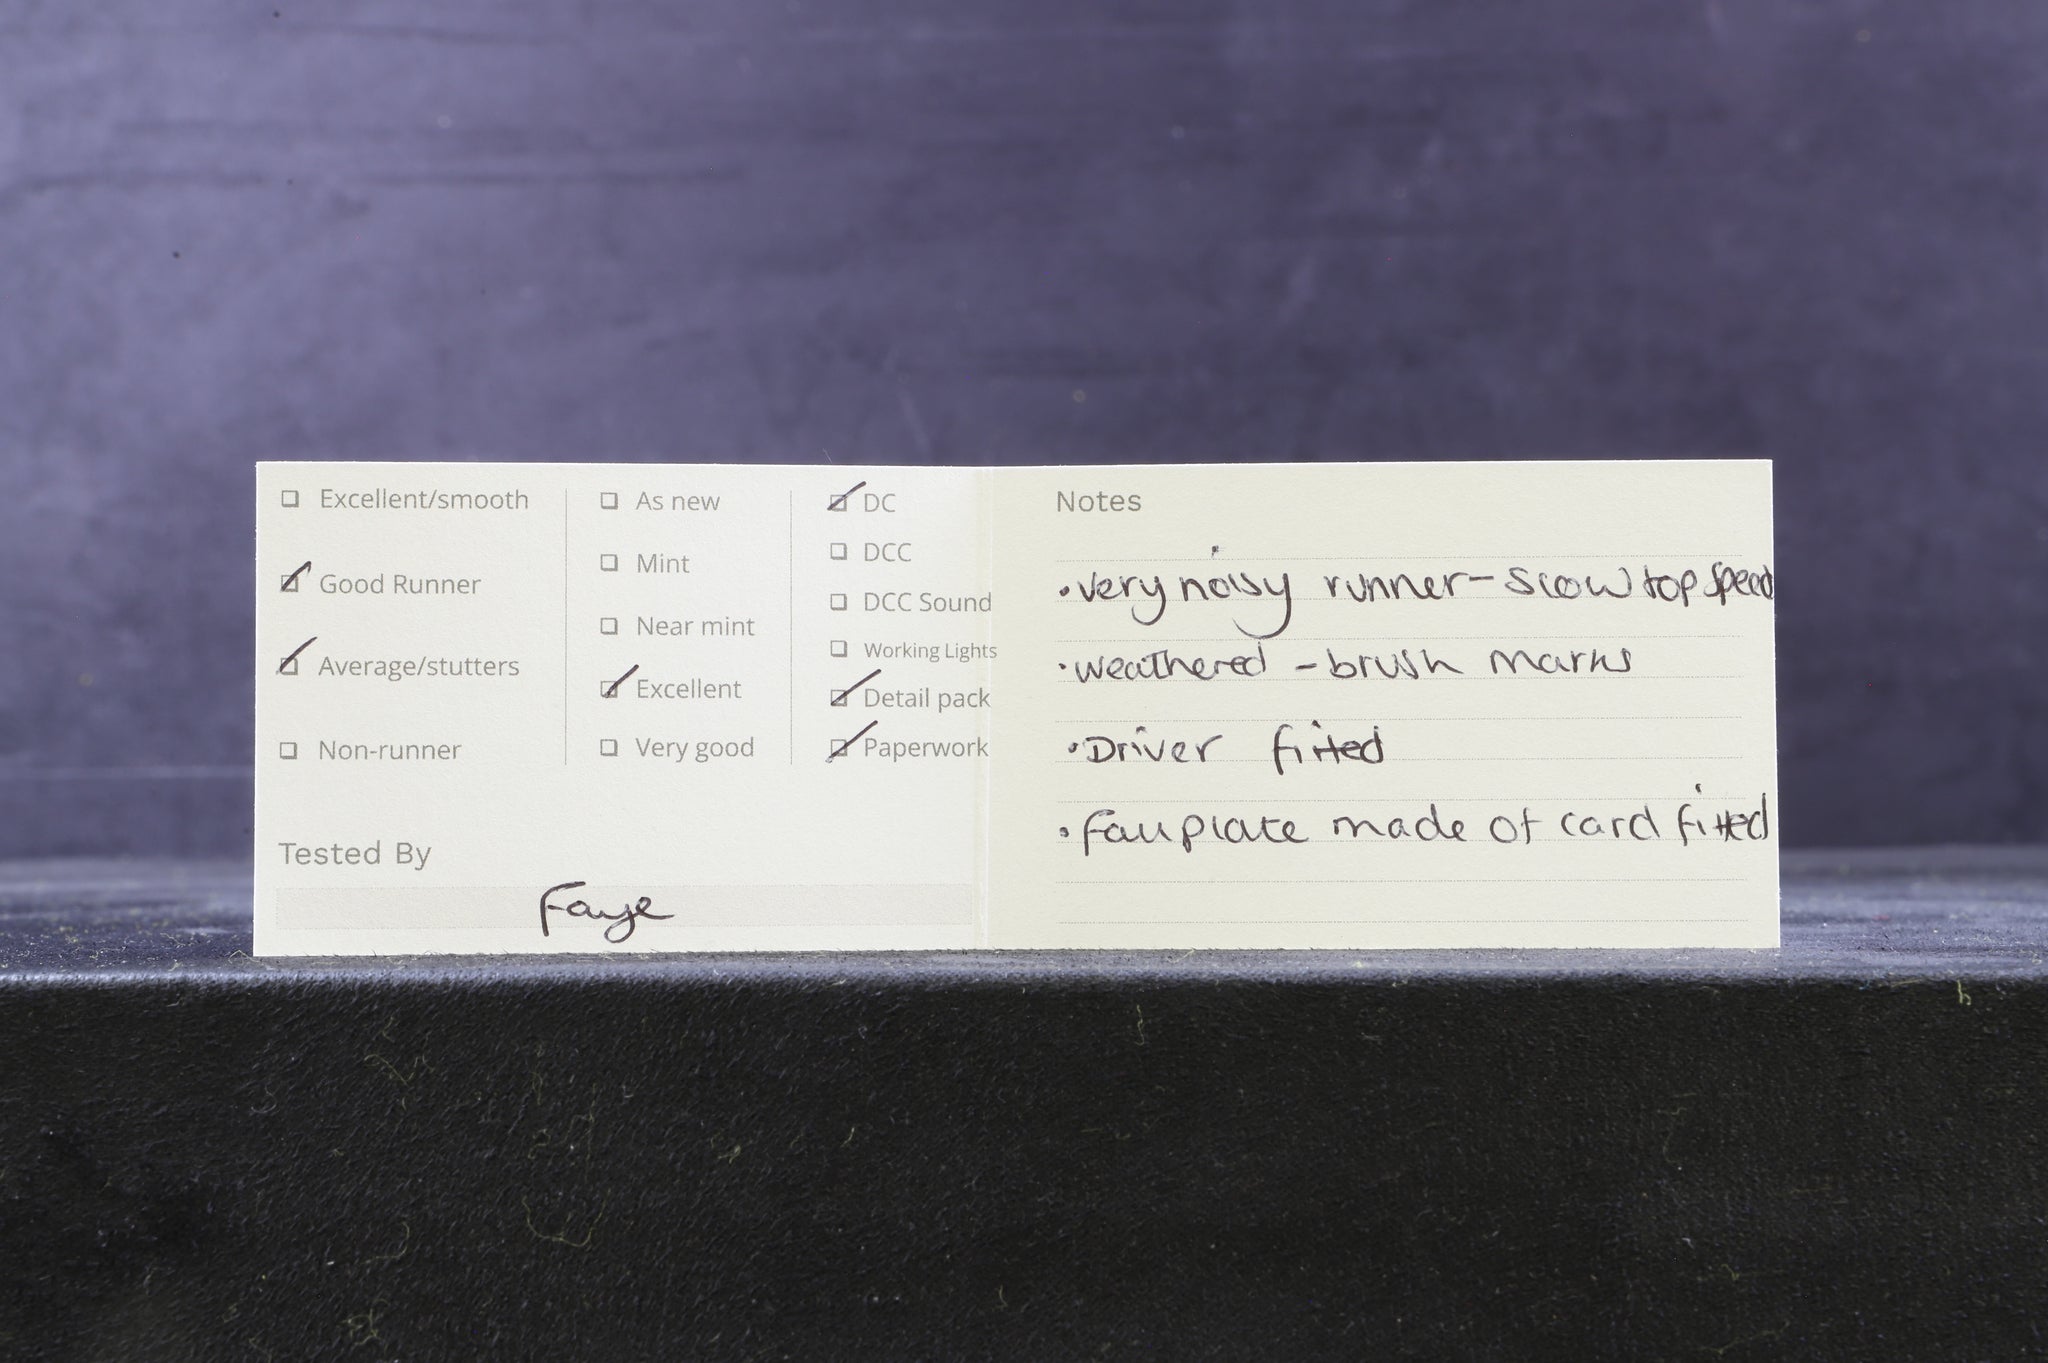 Excellent/smooth
Good Runner
Average/stutters
Non-runner
As new
Mint
Near mint
Excellent
Very good
DC
DCC
DCC Sound
Working Lights
Detail pack
Paperwork
Tested By
Faye
Notes
• Very noisy runner - Slow top speed
• Weathered - brush marks
• Driver fitted
• Fallplate made of card fitted